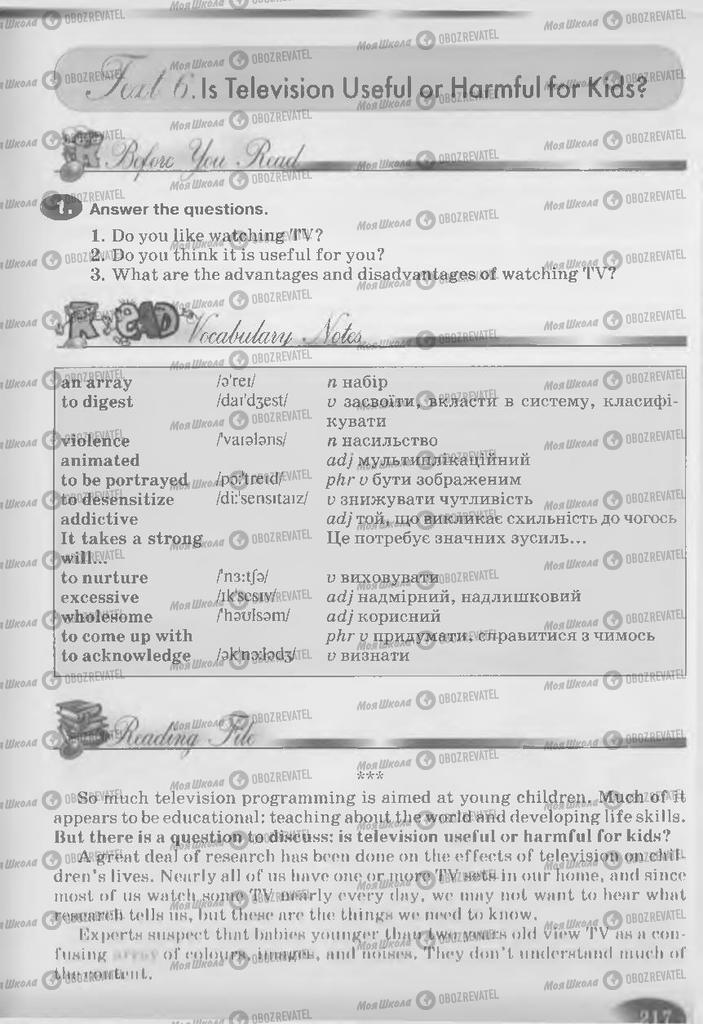 Text 6. Is Television Useful or Harmful for Kids?
Before You Read
1. Answer the questions.
1. Do you like watching TV?
2. Do you think it is useful for you?
3. What are the advantages and disadvantages of watching TV?
READ Vocabulary Notes
an array /ə'reɪ/ n набір
to digest /daɪ'dʒest/ v засвоїти, вкласти в систему, класифі-
кувати
violence /'vaɪələns/ n насильство
animated adj мультиплікаційний
to be portrayed /pɔ:'treɪd/ phr v бути зображеним
to desensitize /di:'sensɪtaɪz/ v знижувати чутливість
addictive adj той, що викликає схильність до чогось
It takes a strong Це потребує значних зусиль...
will...
to nurture /'nɜ:tʃə/ v виховувати
excessive /ɪk'sesɪv/ adj надмірний, надлишковий
wholesome /'həʊlsəm/ adj корисний
to come up with phr v придумати, справитися з чимось
to acknowledge /ək'nɔ:lədʒ/ v визнати
Reading File
***
So much television programming is aimed at young children. Much of it
appears to be educational: teaching about the world and developing life skills.
But there is a question to discuss: is television useful or harmful for kids?
A great deal of research has been done on the effects of television on chil
dren's lives. Nearly all of us have one or more TV sets in our home, and since
most of us watch some TV nearly every day, we may not want to hear what
research tells us, but these are the things we need to know.
Experts suspect that babies younger than two years old view TV as a con-
fusing array of colours, images, and noises. They don't understand much of
the content.
217
МояШкола OBOZREVATEL